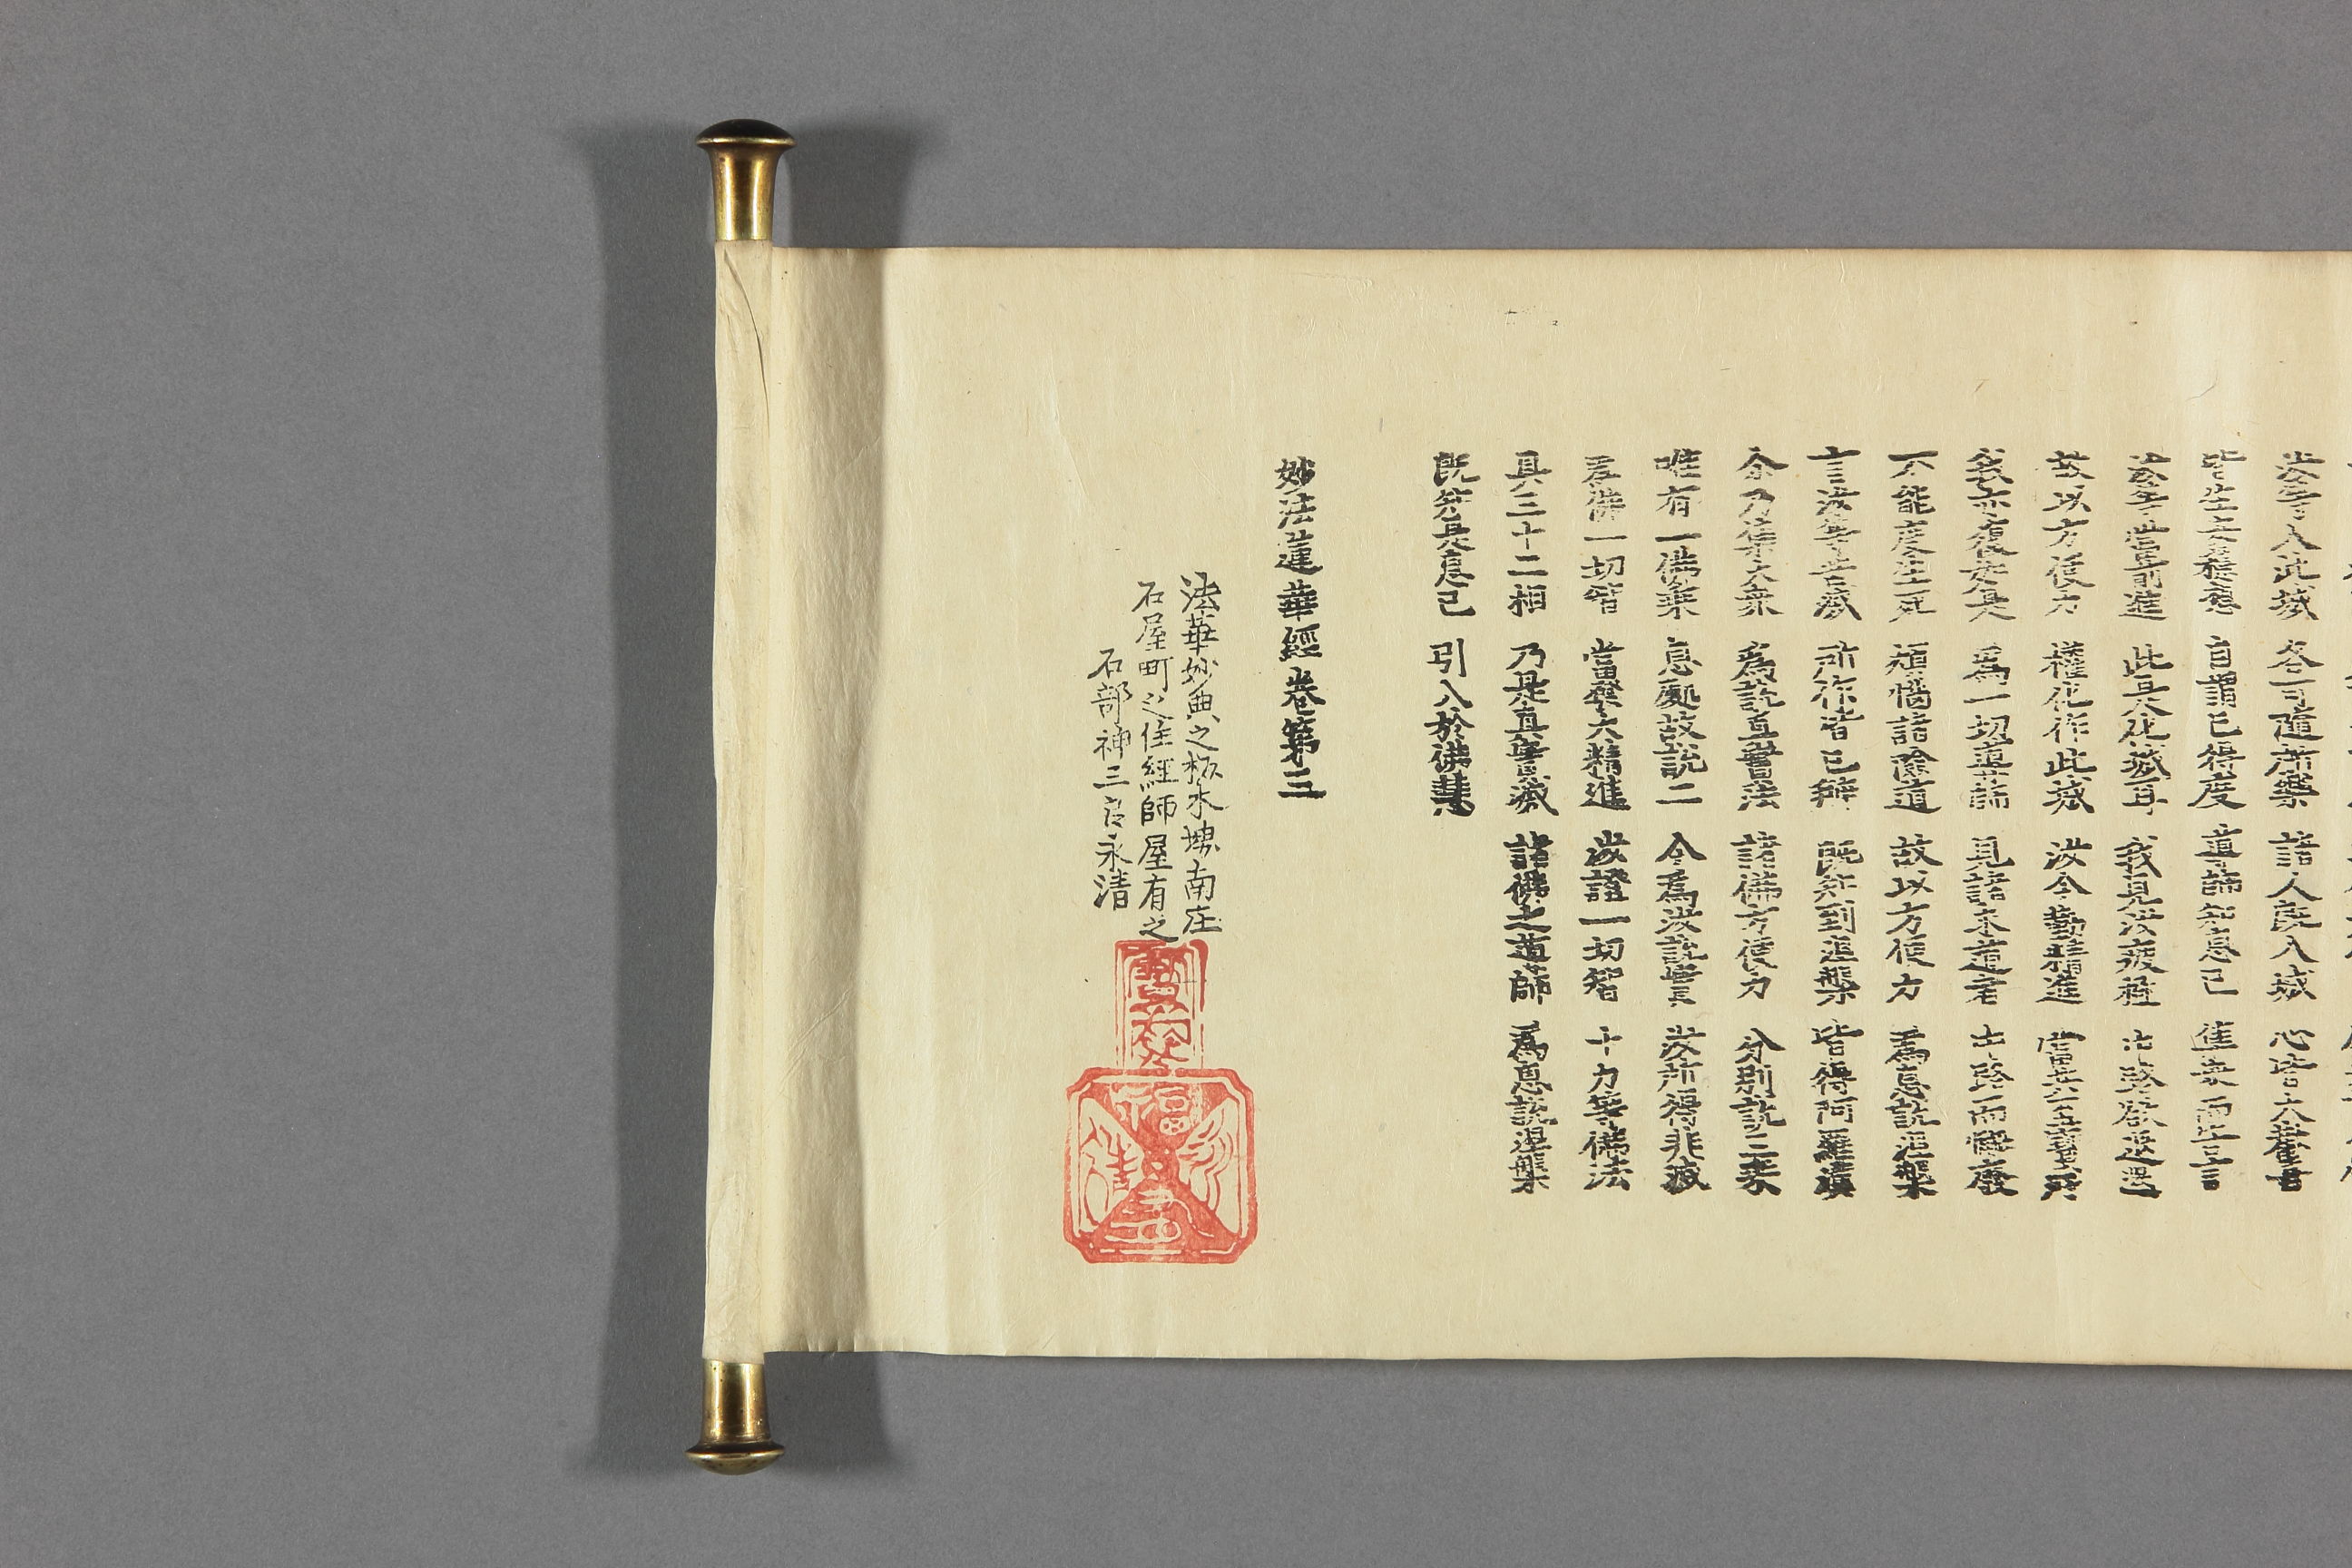 汝等入此城 各可隨所樂 諸人既入城 心皆大歡喜
皆生安穩想 自謂已得度 導師知息已 集衆而告言
汝等當前進 此是化城耳 我見汝疲極 中路欲退還
故以方便力 權化作此城 汝今勤精進 當共至寶所
我亦復如是 為一切導師 見諸求道者 中路而懈廢
不能度生死 煩惱諸險道 故以方便力 為息說涅槃
言汝等苦滅 所作皆已辦 既知到涅槃 皆得阿羅漢
尒乃集大衆 為說真實法 諸佛方便力 分別說三乘
唯有一佛乘 息處故說二 今為汝說實 汝所得非滅
為佛一切智 當發大精進 汝證一切智 十力等佛法
具三十二相 乃是真實滅 諸佛之導師 為息說涅槃
既知是息已 引入於佛慧
妙法蓮華經卷第三
法華妙典之板木堺南庄
石屋町之住経師屋有之
石部神三良永清